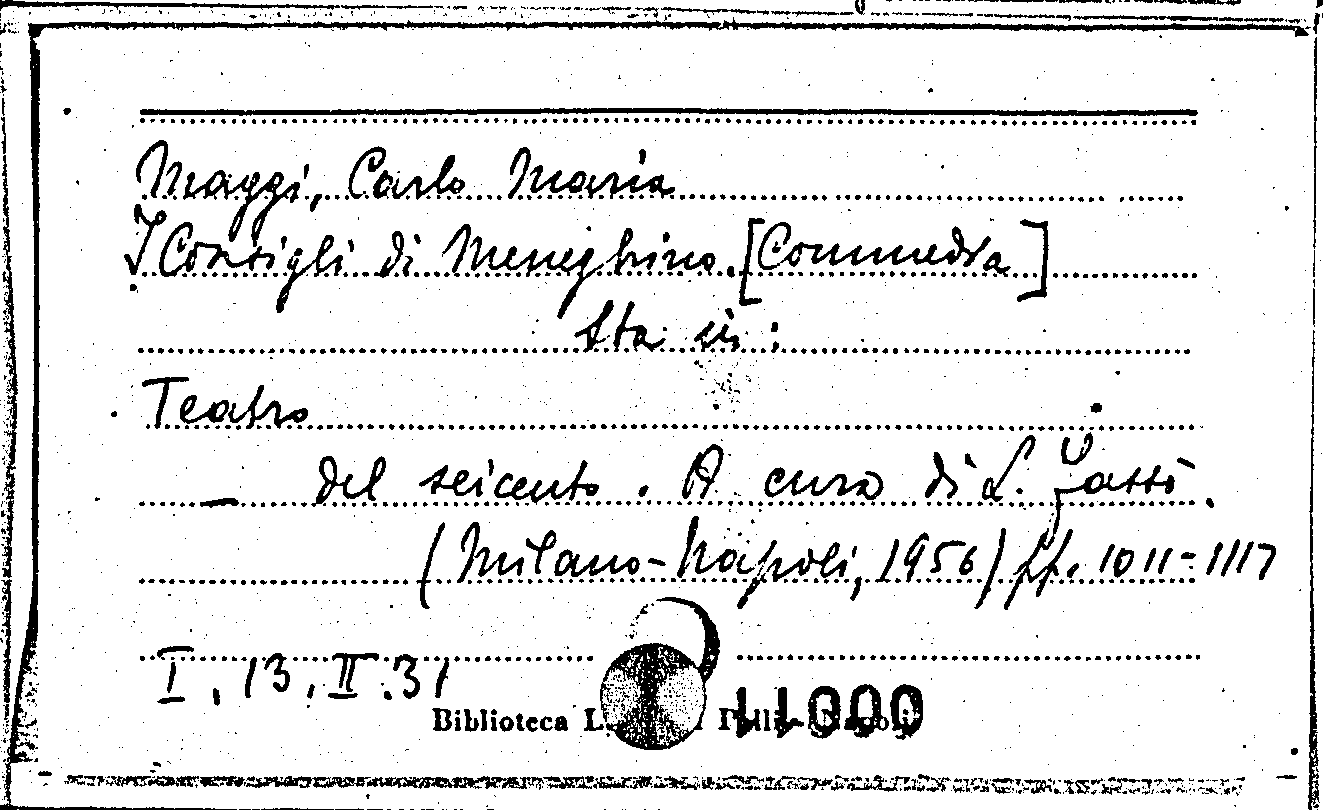 Maggi, Carlo Maria
I Consigli di Meneghino. [Commedia]
Sta in:
Teatro
— del seicento. A cura di L. Fassò.
(Milano-Napoli, 1956) pp. 1011-1117
I, 13, II. 31
Biblioteca L.
11000